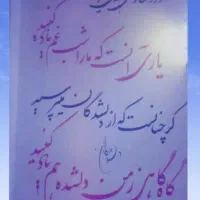 یاری آنست که ما را شب غم یاد کنید
گر چنانست که از دلشدگان میپرسید
گاه گاهی ز من دلشده هم یاد کنید